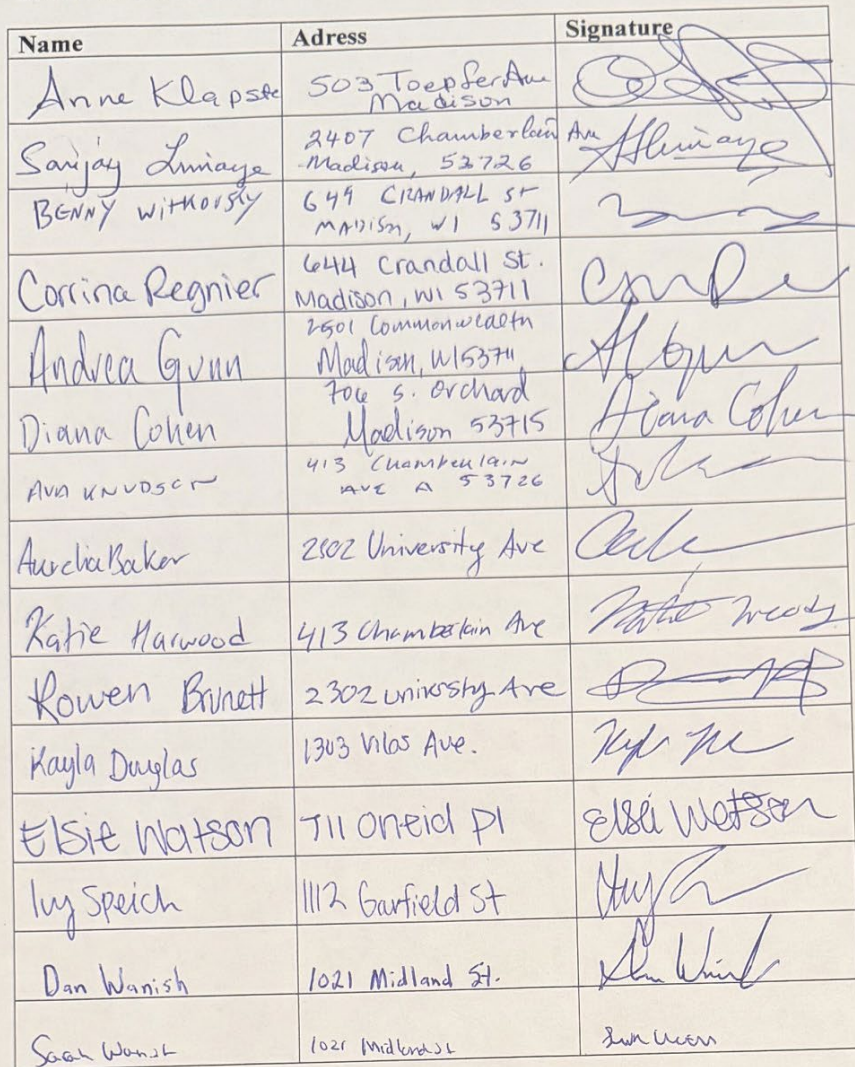 Name Adress Signature
Anne Klapste 503 Toepfer Ave
Madison
Sanjay Limaye 2407 Chamberlain Ave
Madison, 53726
BENNY WITKOVSKY 649 CRANDALL St
MADISON, WI 53711
Corrina Regnier 644 Crandall St.
Madison, WI 53711
Andrea Gunn 2501 Commonwealth
Madison, WI 53711
Diana Cohen 706 S. Orchard Diana Cohen
Madison 53715
AVA KNUDSEN 413 Chamberlain
AVE A 53726
Aurelia Baker 2302 University Ave
Katie Harwood 413 Chamberlain Ave
Rowen Brunett 2302 University Ave
Kayla Douglas 1303 Vilas Ave.
Elsie Watson 711 Oneid Pl Elsie Watson
Ivy Speich 1112 Garfield St
Dan Wanish 1021 Midland St.
Sarah Wanish 1021 Midland St